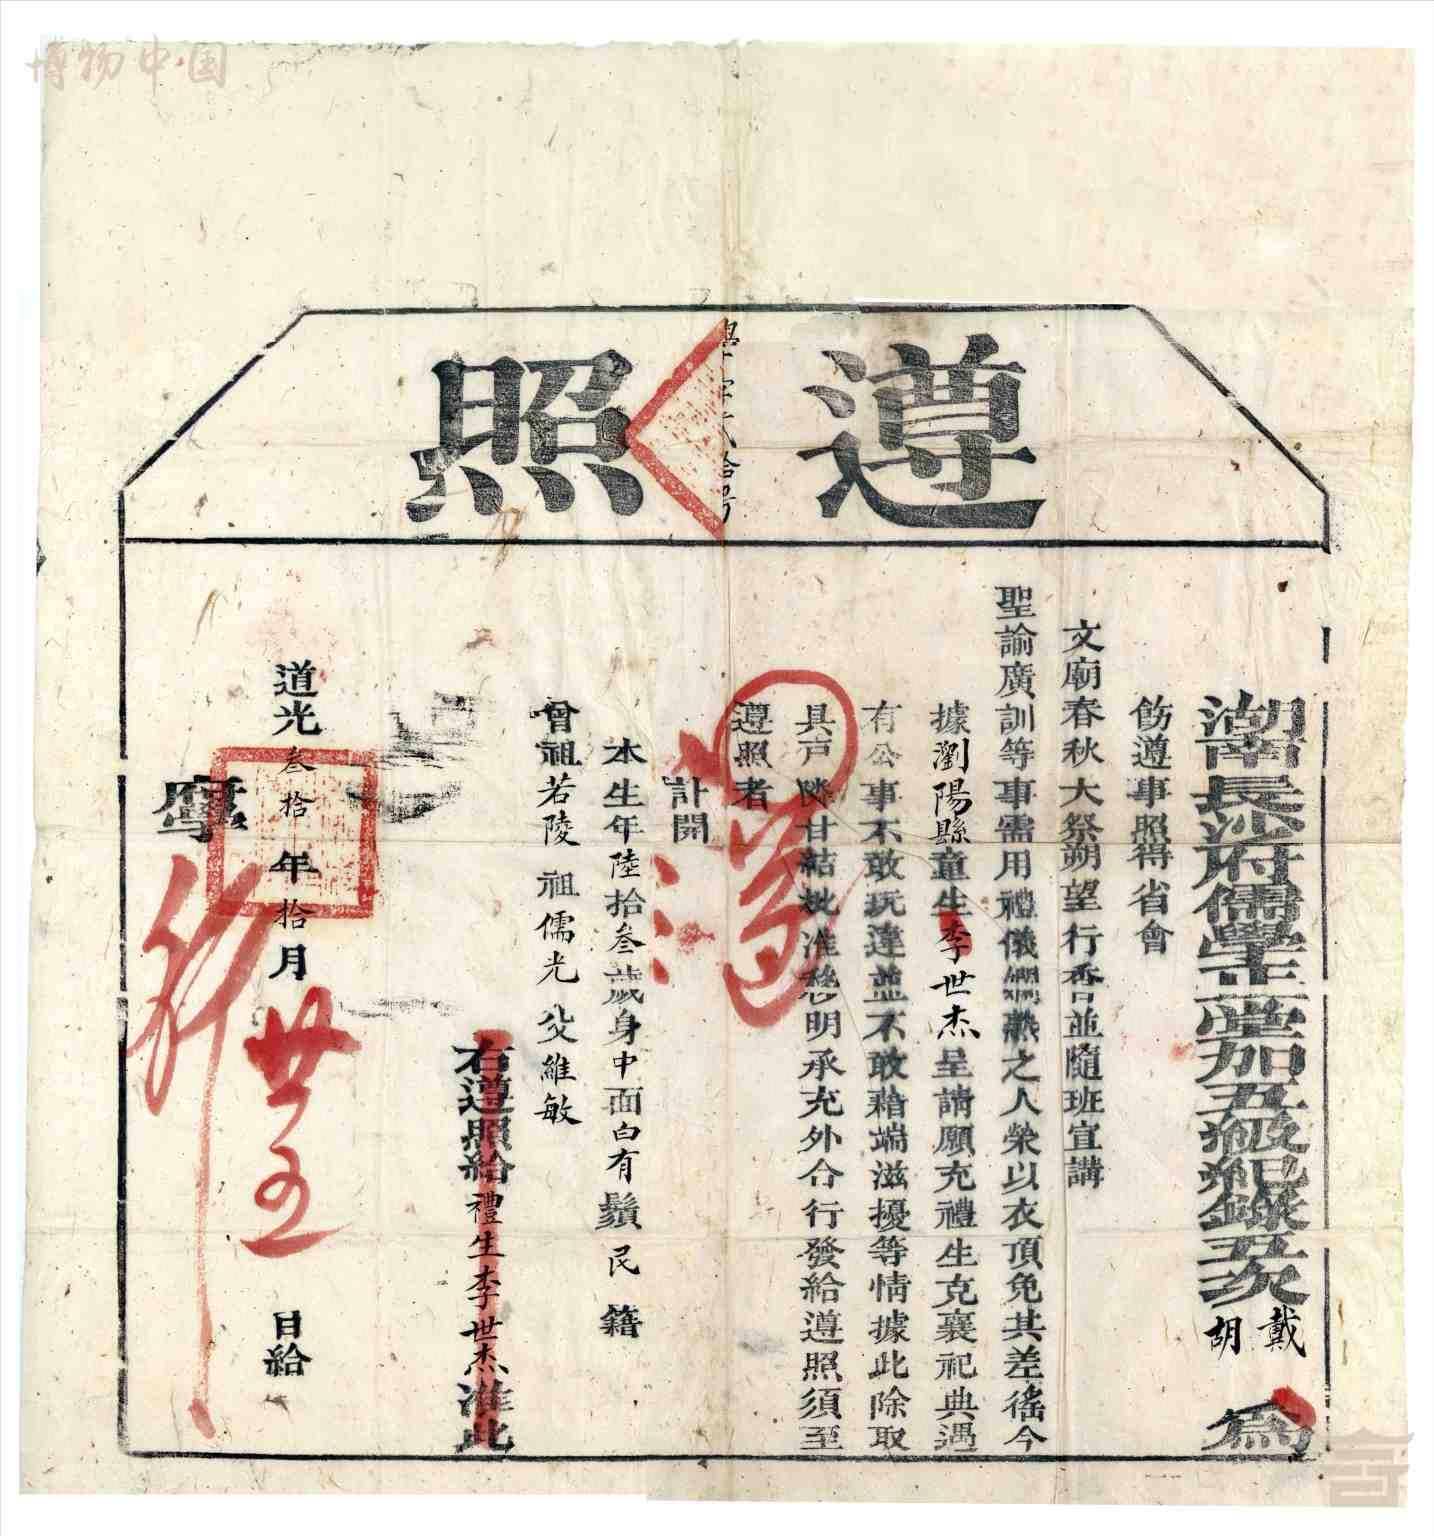 博物中国
遵照
湖南長沙府儒學正堂加五級紀錄五次戴胡爲
飭遵事照得省會
文廟春秋大祭朔望行香並隨班宣講
聖諭廣訓等事需用禮儀嫻熟之人榮以衣頂免其差徭今
據瀏陽縣童生李世杰呈請願充禮生克襄祀典遇
有公事不敢玩違並不敢藉端滋擾等情據此除取
具戸隣甘結批准移明承充外合行發給遵照須至
遵照者
計開
本生年陸拾叁歲身中面白有鬚民籍
曾祖若陵祖儒光父維敏
右遵照給禮生李世杰准此
道光叁拾年拾月廿五日給
學
行
遵